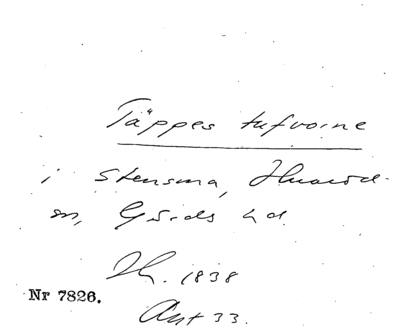 Täppes tufvorne
i Stensma, Hvaröd
sn, Gärds hd.
Th. 1838
Nr 7826.
Ant 33.